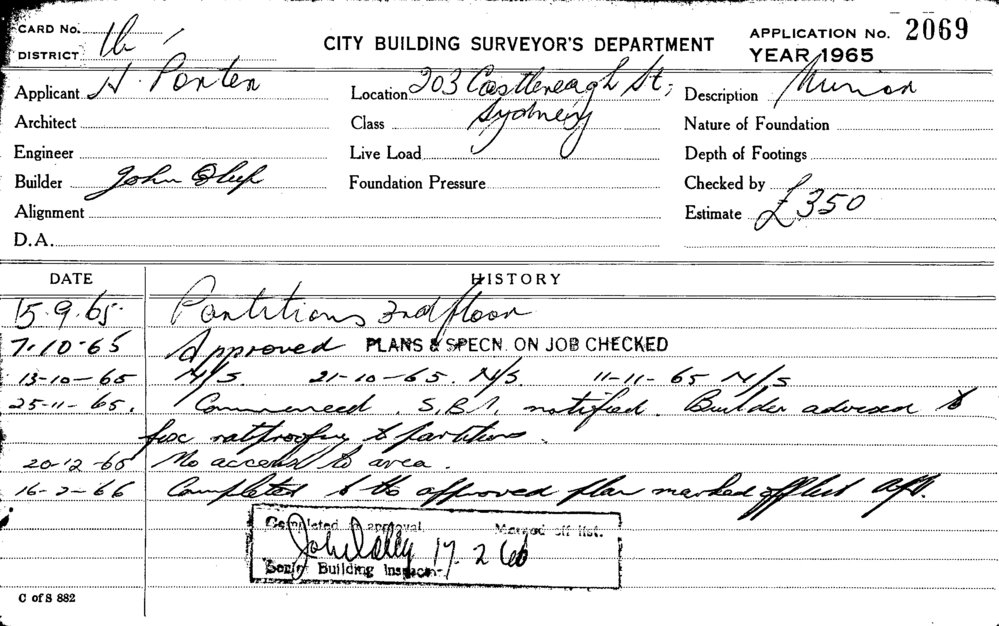 CARD No.
DISTRICT
CITY BUILDING SURVEYOR'S DEPARTMENT
APPLICATION No. 2069
YEAR 1965
Applicant H. Porter
Location 203 Castlereagh St,
Sydney
Description Minor
Architect
Class
Nature of Foundation
Engineer
Live Load
Depth of Footings
Builder John
Foundation Pressure
Checked by
Alignment
Estimate £350
D.A.
DATE HISTORY
15.9.65. Partitions 2nd floor
7.10-65 Approved PLANS & SPECN. ON JOB CHECKED
13-10-65 N/S. 21-10-65. N/S. 11-11-65 N/S
25-11-65. Commenced. S.B.I. notified. Builder advised to
fix ratproofing to partitions.
20-12-65 No access to area.
16-2-66 Completed to the approved plan marked off list
Completed approval. Marked off list.
17 2 66
Senior Building Inspector
C of S 882